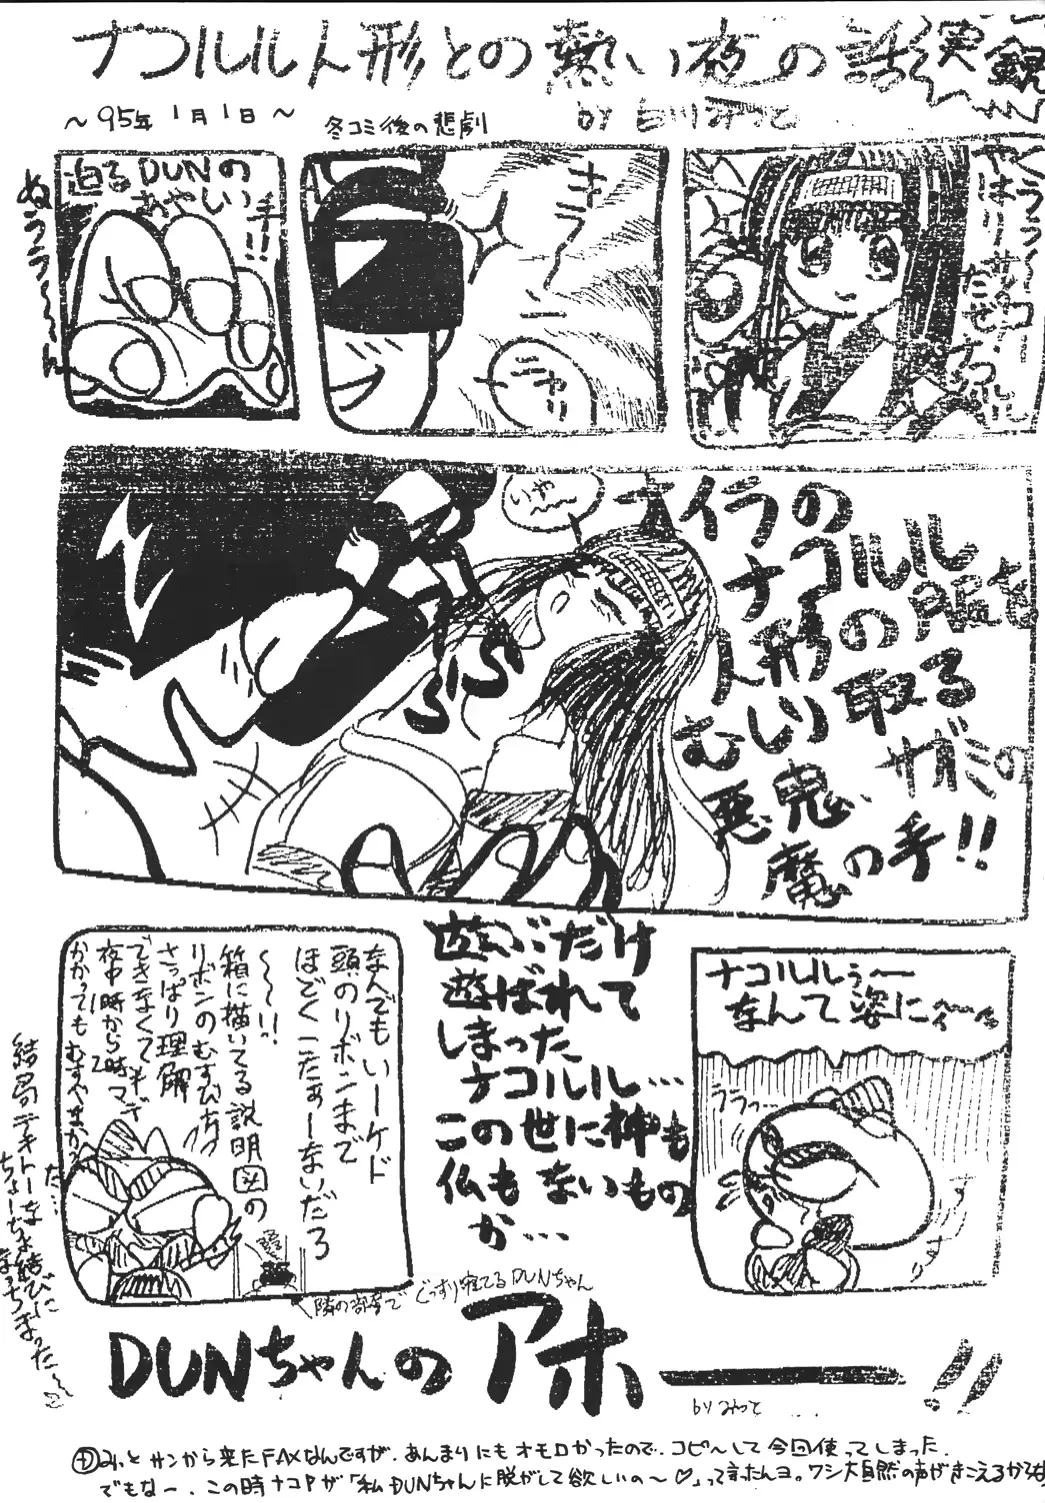 ナコルル人形との熱い夜の話 実録
～95年1月1日～
冬コミ後の悲劇
by 白川みつと
迫るDUNの
あやしい
手!!
ぬうう～～ん
キラーン
ニヤリ
クラクラ～
やはりサムスピは
ナコルルだぜ
いや～
ナイラの
ナコルル
人形の服を
むしり取る
悪鬼、サガミの
魔の手!!
遊ぶだけ
遊ばれて
しまった
ナコルル…
この世に神も
仏もないもの
か…
なんでもいーケド
頭のリボンまで
ほどくこたぁーないだろ
～～!!
箱に描いてる説明図の
リボンのむすびは
さっぱり理解
できなくて
夜中
かかってもむすべまか
結局テキトーな
ちょーちょ結びに
なっちまった～
隣の部屋でぐっすり寝てるDUNちゃん
ナコルルぅ～
なんて姿に
ううっ…
DUNちゃんのアホ――!!
by みつと
みっとサンから来たFAXなんですが、あんまりにもオモロかったので、コピ～して今回使ってしまった。
でもなー、この時ナコPが「私DUNちゃんに脱がして欲しいの～♡」って言ったんヨ。ワシ大自然の声がきこえるから